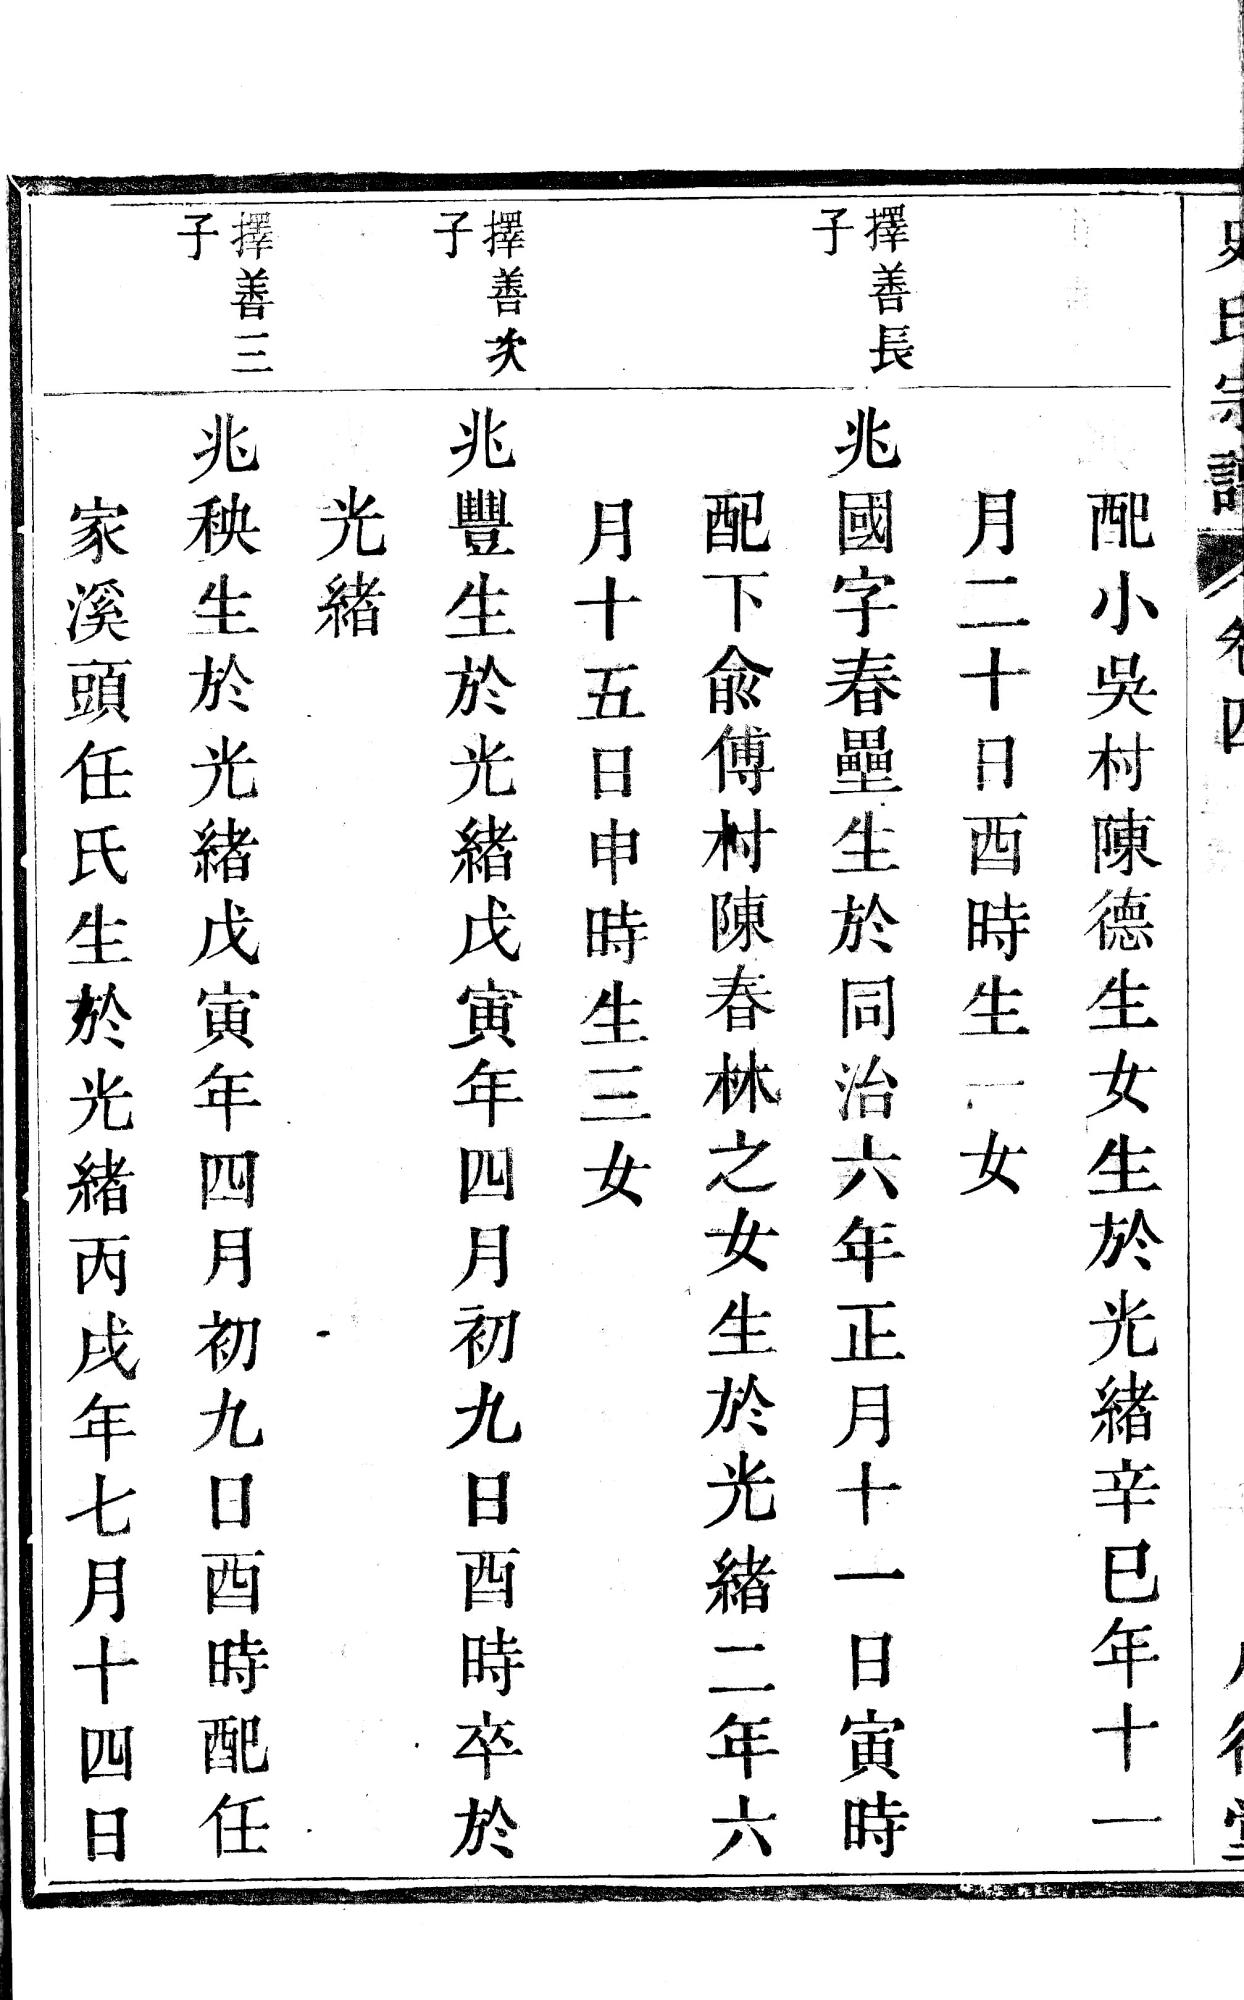 史氏宗譜
卷四
配小吳村陳德生女生於光緒辛巳年十一
月二十日酉時生一女
擇善長
子
兆國字春壘生於同治六年正月十一日寅時
配下俞傅村陳春林之女生於光緒二年六
月十五日申時生三女
擇善次
子
兆豐生於光緒戊寅年四月初九日酉時卒於
光緒
擇善三
子
兆秧生於光緒戊寅年四月初九日酉時配任
家溪頭任氏生於光緒丙戌年七月十四日